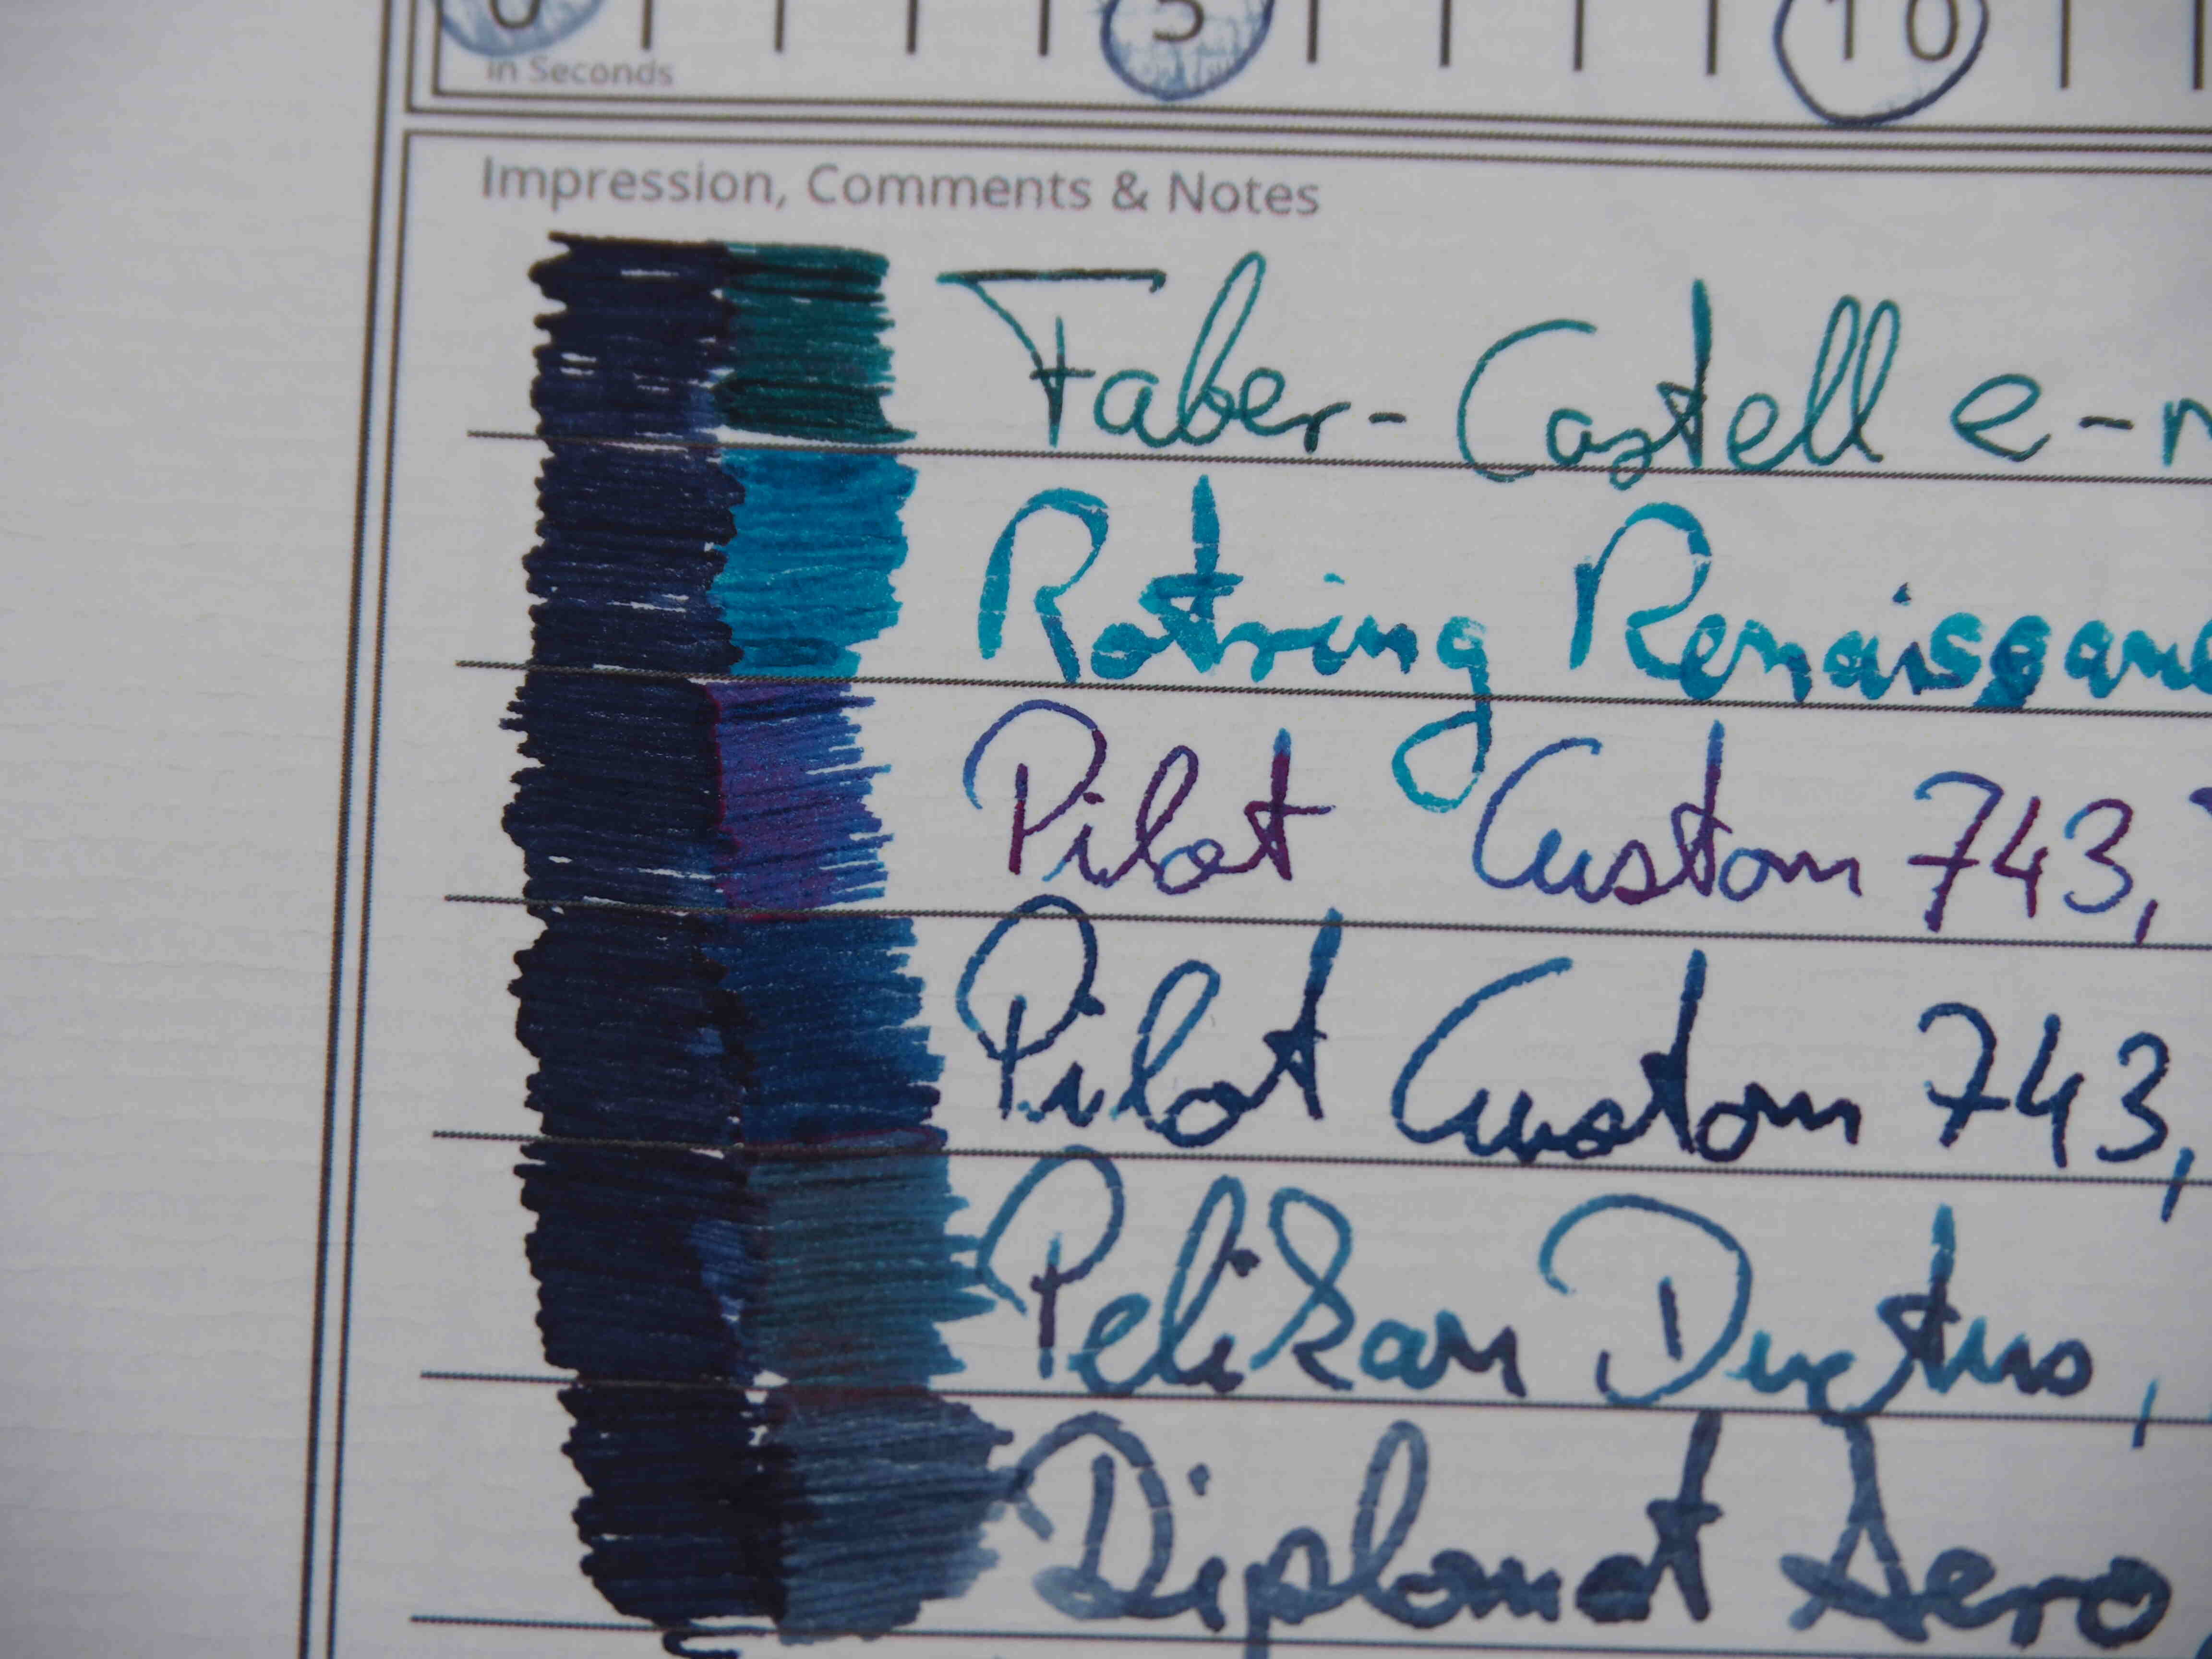 0 5 10
in Seconds
Impression, Comments & Notes
Faber-Castell e-
Rotring Renaissance
Pilot Custom 743,
Pilot Custom 743,
Pelikan Ductus,
Diplomat Aero